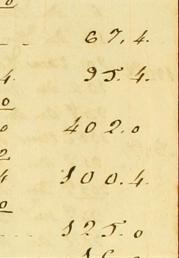 0
67.4.
4 95.4.
0
0 402.0
2
4 100.4.
0
125.0